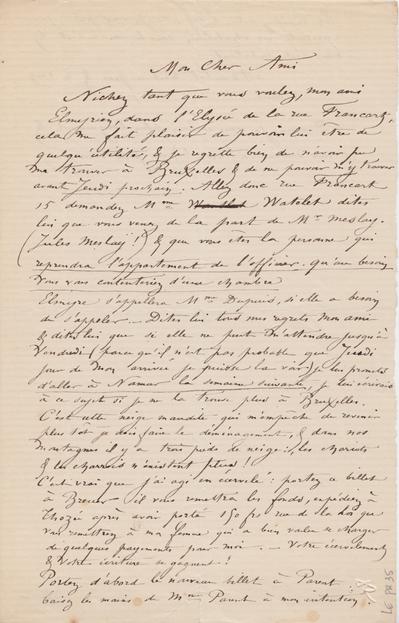 Mon Cher Ami
Nichez tant que vous voulez, mon ami
Elmyrien, dans l'Elysée de la rue Francart,
cela me fait plaisir de pouvoir lui être de
quelqu'utilité, & je regrette bien de n'avoir pu
me trouver à Bruxelles & de ne pouvoir m'y trouver
avant Jeudi prochain. Allez donc rue Francart
15 demandez Mme Watelet dites
lui que vous venez de la part de Mr Meslay.
(Jules Meslay!) & que vous êtes la personne qui
reprendra l'appartement de l'officier. qu'au besoin
vous vous contenteriez d'une chambre
Elmyre s'appellera Mme Dupuis, si elle a besoin
de s'appeler – Dites lui tous mes regrets mon ami
& dites lui que si elle ne peut m'attendre jusqu'à
Vendredi (parce qu'il n'est pas probable que Jeudi
jour de mon arrivée je puisse la voir) je lui promets
d'aller à Namur la semaine suivante, je lui écrirais
à ce sujet si je ne la trouve plus à Bruxelles.
C'est cette neige maudite qui m'empêche de revenir
plus tôt je dois faire le déménagement, & dans nos
Montagnes il y a trois pieds de neige; les chariots
& les charrois n'existent plus!
C'est vrai que j'ai agi en écervelé: portez ce billet
à – il vous remettra les fonds, expédiez à
Thozée après avoir porté 150 frs rue de la Loi que
vous remettrez à ma femme qui a bien voulu se charger
de quelques payements pour moi. – Votre écervelement
& votre écriture se gagnent!
Portez d'abord le nouveau billet à Parent.
baisez les mains de Mme Parent à mon intention.